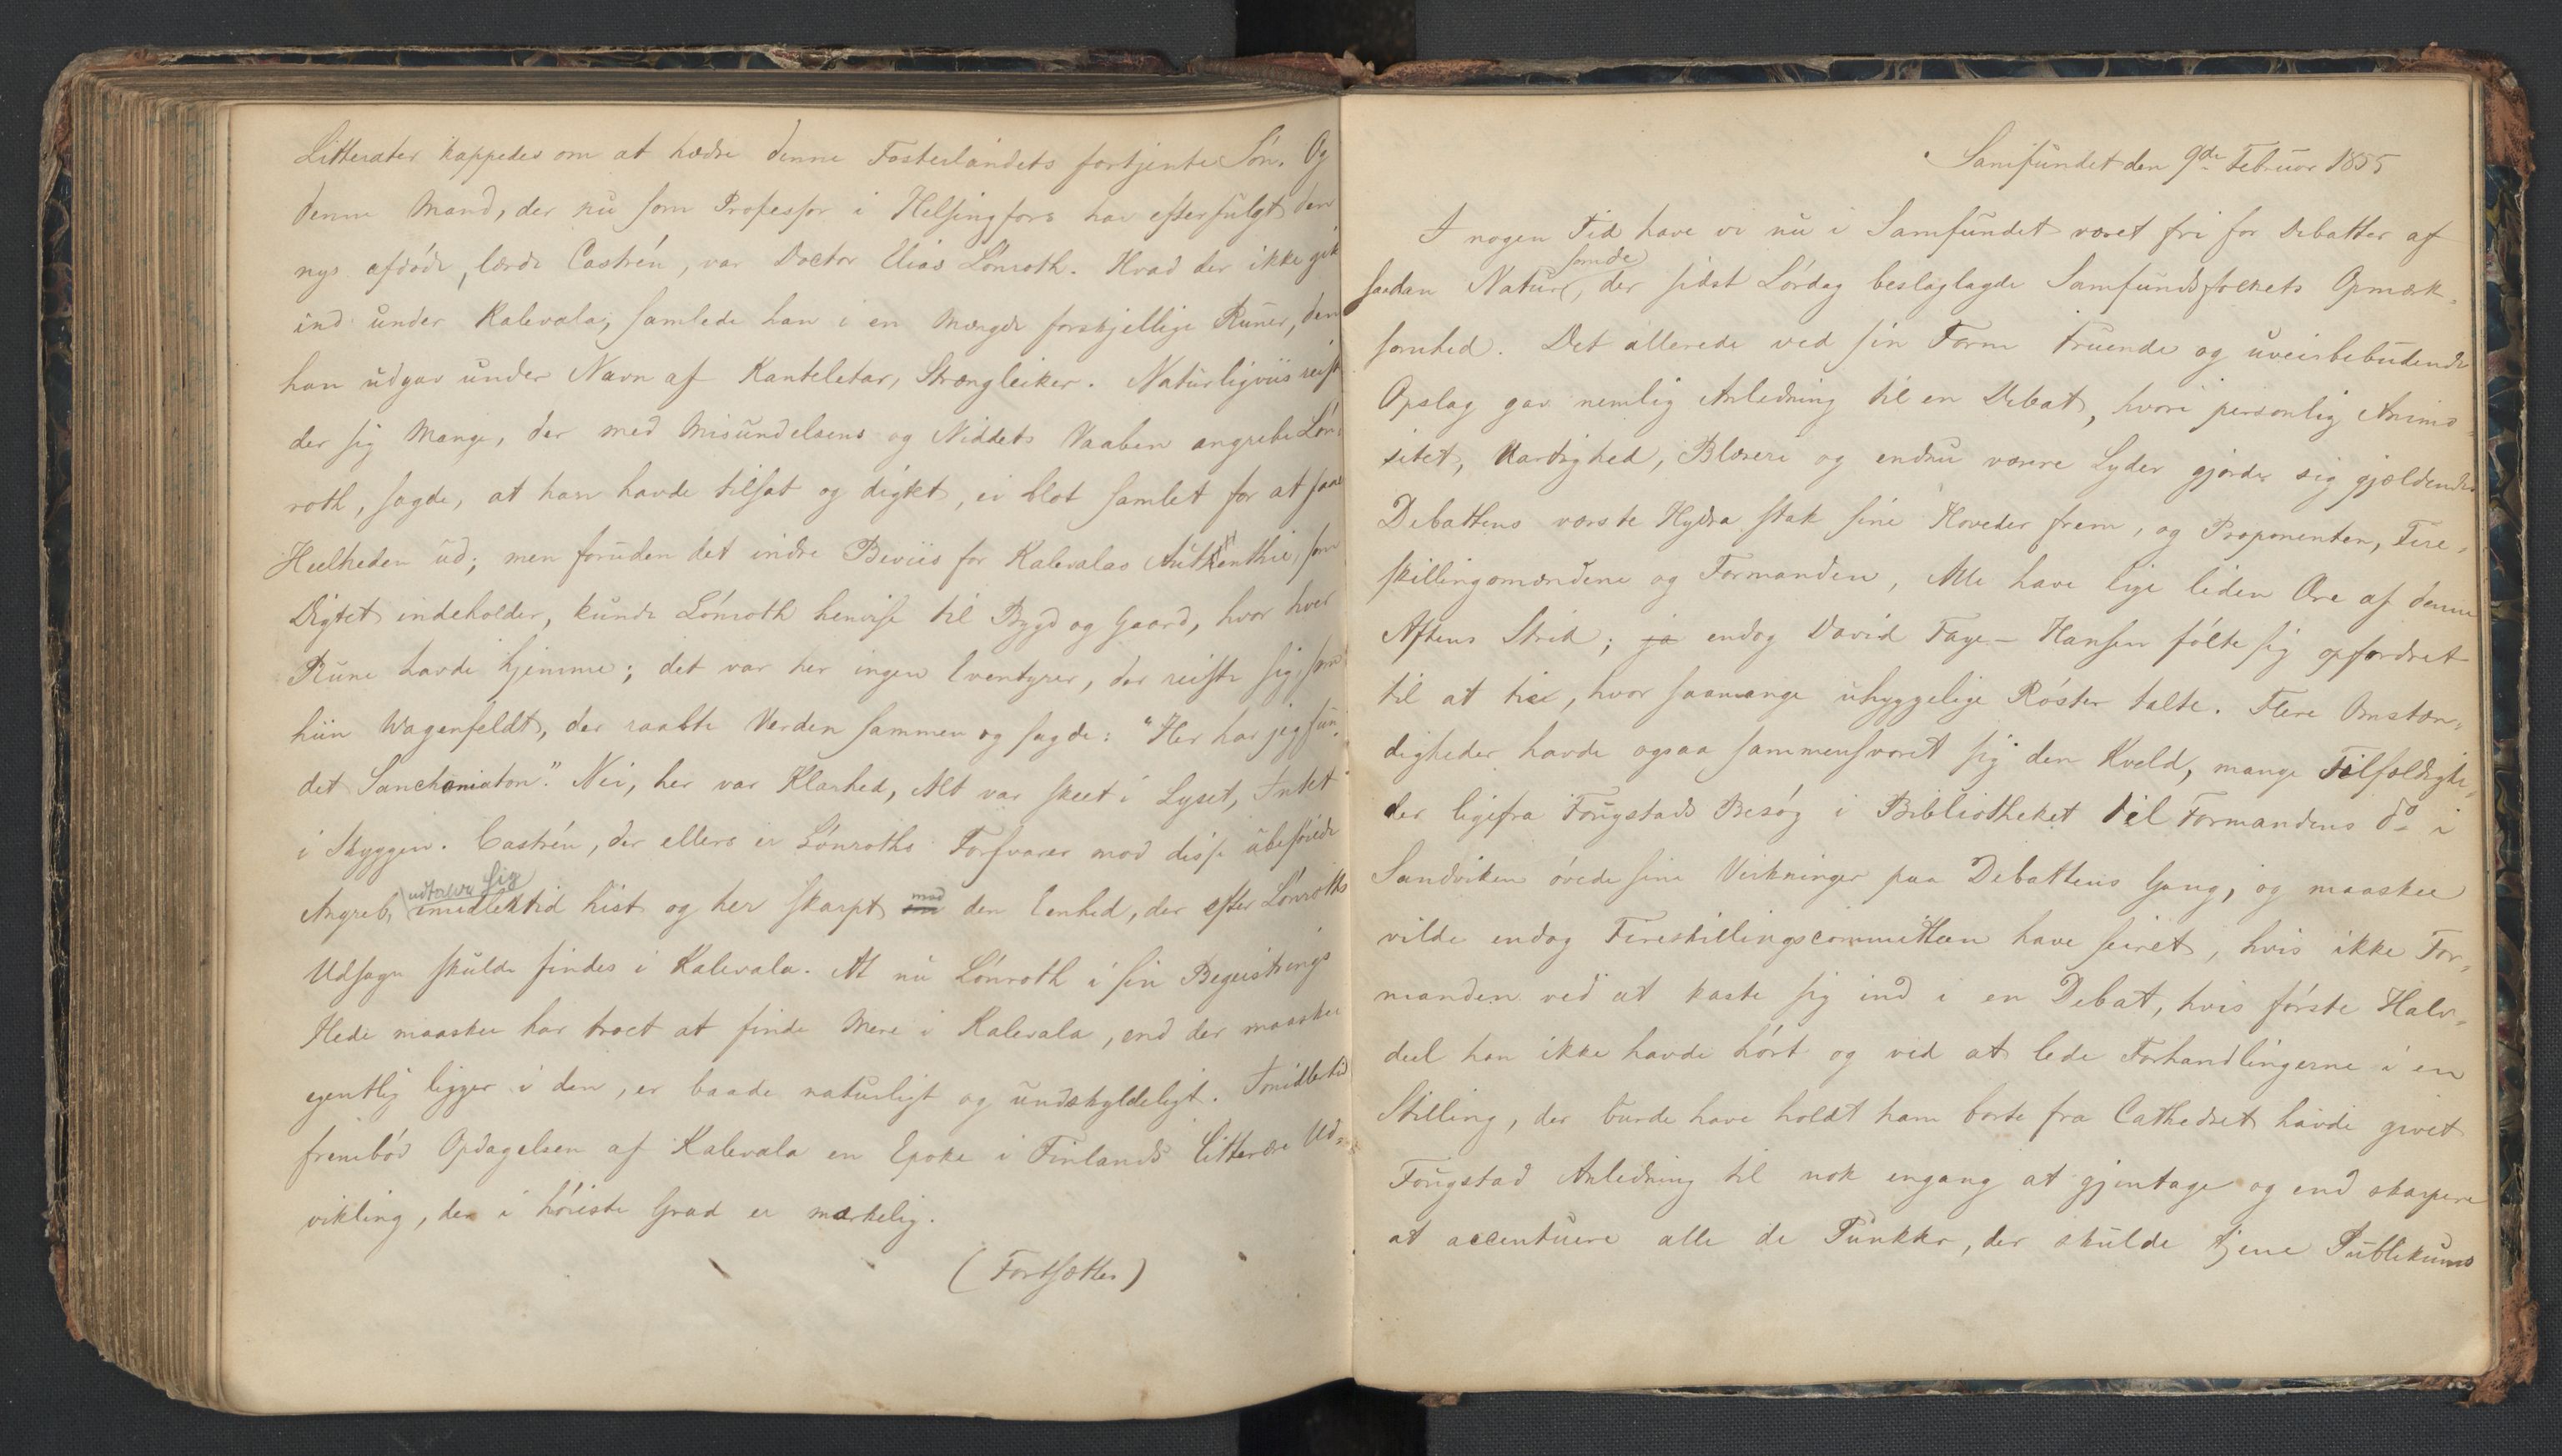 Litterater kappedes om at hædre denne Fosterlandets fortjente Søn. Og
denne Mand, der nu som Professor i Helsingfors har efterfulgt den
nys afdøde, lærde Castrén, var Doctor Elias Lönroth. Hvad der ikke gik
ind under Kalevala, samlede han i en Mængde forskjellige Runer, dem
han udgav under Navn af Kanteletar, Strængleiker. Naturligviis reiste
der sig Mange, der med Misundelsens og Niddets Vaaben angrebe Lön-
roth, sagde, at han havde tilsat og digtet, ei blot samlet for at faae
Heelheden ud; men foruden det indre Beviis for Kalevalas Authenthie, som
Digtet indeholder, kunde Lönroth henvise til Bygd og Gaard, hvor hver
Rune havde hjemme; det var her ingen Eventyrer, der reiste sig, som
hiin Wagenfeldt, der raabte Verden sammen og sagde: "Her har jeg fun-
det Sanchoniaton". Nei, her var Klarhed, Alt var skeet i Lyset, Intet
i Skyggen. Castrén, der ellers er Lönroths Forsvarer mod disse ubeføiede
udtaler sig
Angreb, imidlertid hist og her skarpt om mod den Eenhed, der efter Lönroths
Udsagn skulde findes i Kalevala. At nu Lönroth i sin Begeistrings
Hede maaskee har troet at finde Mere i Kalevala, end der maaskee
egentlig ligger i den, er baade naturligt og undskyldeligt. Imidlertid
frembød Opdagelsen af Kalevala en Epoke i Finlands litterære Ud-
vikling, der i høieste Grad er mærkelig.
(Fortsættes)
Samfundet den 9de Februar 1855
I nogen Tid have vi nu i Samfundet været fri for Debatter af
somde
saadan Natur, der sidst Lördag beslaglagde Samfundsfolkets Opmærk-
somhed. Det allerede ved sin Form truende og uveirbebudende
Opslag gav nemlig Anledning til en Debat, hvori personlig Animo-
sitet, Blæreri og endnu værre Lyder gjorde sig gjældende
Debattens værste Hydra stak sine Hoveder frem, og Proponenten, Fire-
skillingsmændene og Formanden, Alle have lige liden Ære af denne
Aftens Strid; ja endog David Faye-Hansen fölte sig opfordret
til at tie, hvor saamange uhyggelige Röster talte. Flere Omstæn-
digheder havde ogsaa sammensvoret sig den Kveld, mange Tilfældighe-
der ligefra Fougstads Besög i Bibliotheket til Formandens do i
Sandviken övede sine Virkninger paa Debattens Gang, og maaskee
vilde endog Fireskillingscommitteen have seiret, hvis ikke For-
manden ved at kaste sig ind i en Debat, hvis förste Halv-
deel han ikke havde hört og ved at lede Forhandlingerne i en
Stilling, der burde have holdt ham borte fra Cathedret havde givet
Fougstad Anledning til nok engang at gjentage og end skarpere
at accentuere alle de Punkter, der skulde tjene Publikums